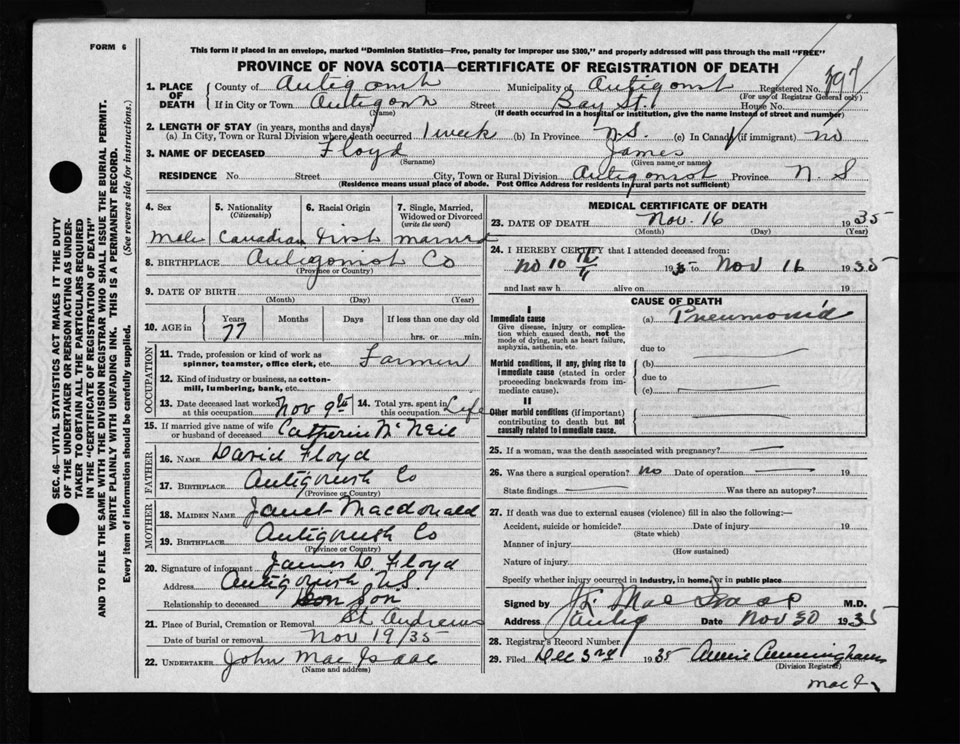 FORM 6
This form if placed in an envelope, marked "Dominion Statistics—Free, penalty for improper use $300," and properly addressed will pass through the mail "FREE"
PROVINCE OF NOVA SCOTIA—CERTIFICATE OF REGISTRATION OF DEATH
1. PLACE OF DEATH
County of Antigonish Municipality of Antigonish Registered No. 397
(For use of Registrar General only)
If in City or Town Antigonish Street Bay St. House No.
(Name) (If death occurred in a hospital or institution, give the name instead of street and number)
2. LENGTH OF STAY (in years, months and days)
(a) In City, Town or Rural Division where death occurred 1 week (b) In Province N.S. (c) In Canada (if immigrant) no
3. NAME OF DECEASED Floyd James
(Surname) (Given name or names)
RESIDENCE No. Street City, Town or Rural Division Antigonish Province N. S
(Residence means usual place of abode. Post Office Address for residents in rural parts not sufficient)
4. Sex 5. Nationality (Citizenship) 6. Racial Origin 7. Single, Married, Widowed or Divorced (write the word)
Male Canadian Irish married
8. BIRTHPLACE Antigonish Co
(Province or Country)
9. DATE OF BIRTH
(Month) (Day) (Year)
10. AGE in Years Months Days If less than one day old
77 hrs. or min.
OCCUPATION
11. Trade, profession or kind of work as spinner, teamster, office clerk, etc. Farmer
12. Kind of industry or business, as cotton-mill, lumbering, bank, etc.
13. Date deceased last worked at this occupation Nov 9th 14. Total yrs. spent in this occupation Life
15. If married give name of wife or husband of deceased Catherine McNeil
FATHER
16. NAME David Floyd
17. BIRTHPLACE Antigonish Co
(Province or Country)
MOTHER
18. MAIDEN NAME Janet Macdonald
19. BIRTHPLACE Antigonish Co
(Province or Country)
20. Signature of informant James D. Floyd
Address Antigonish N.S.
Relationship to deceased Son
21. Place of Burial, Cremation or Removal St Andrews
Date of burial or removal Nov 19/35
22. UNDERTAKER John MacIsaac
(Name and address)
MEDICAL CERTIFICATE OF DEATH
23. DATE OF DEATH Nov. 16 1935
(Month) (Day) (Year)
24. I HEREBY CERTIFY that I attended deceased from:
No 10th 1935 to Nov 16 1935
and last saw h alive on 19
CAUSE OF DEATH
I
Immediate cause (a) Pneumonia
Give disease, injury or complication which caused death, not the mode of dying, such as heart failure, asphyxia, asthenia, etc.
due to
Morbid conditions, if any, giving rise to immediate cause (stated in order proceeding backwards from immediate cause).
(b)
due to
(c)
II
Other morbid conditions (if important) contributing to death but not causally related to immediate cause.
25. If a woman, was the death associated with pregnancy?
26. Was there a surgical operation? no Date of operation 19
State findings Was there an autopsy?
27. If death was due to external causes (violence) fill in also the following:—
Accident, suicide or homicide? Date of injury 19
(State which)
Manner of injury
(How sustained)
Nature of injury
Specify whether injury occurred in industry, in home, or in public place
Signed by M.D.
Address Antig Date Nov 30 1935
28. Registrar's Record Number
29. Filed Dec 3rd 1935 Annie Cunningham
(Division Registrar)
SEC. 46—VITAL STATISTICS ACT MAKES IT THE DUTY
OF THE UNDERTAKER OR PERSON ACTING AS UNDER-
TAKER TO OBTAIN ALL THE PARTICULARS REQUIRED
IN THE "CERTIFICATE OF REGISTRATION OF DEATH"
AND TO FILE THE SAME WITH THE DIVISION REGISTRAR WHO SHALL ISSUE THE BURIAL PERMIT.
WRITE PLAINLY WITH UNFADING INK. THIS IS A PERMANENT RECORD.
Every item of information should be carefully supplied. (See reverse side for instructions.)